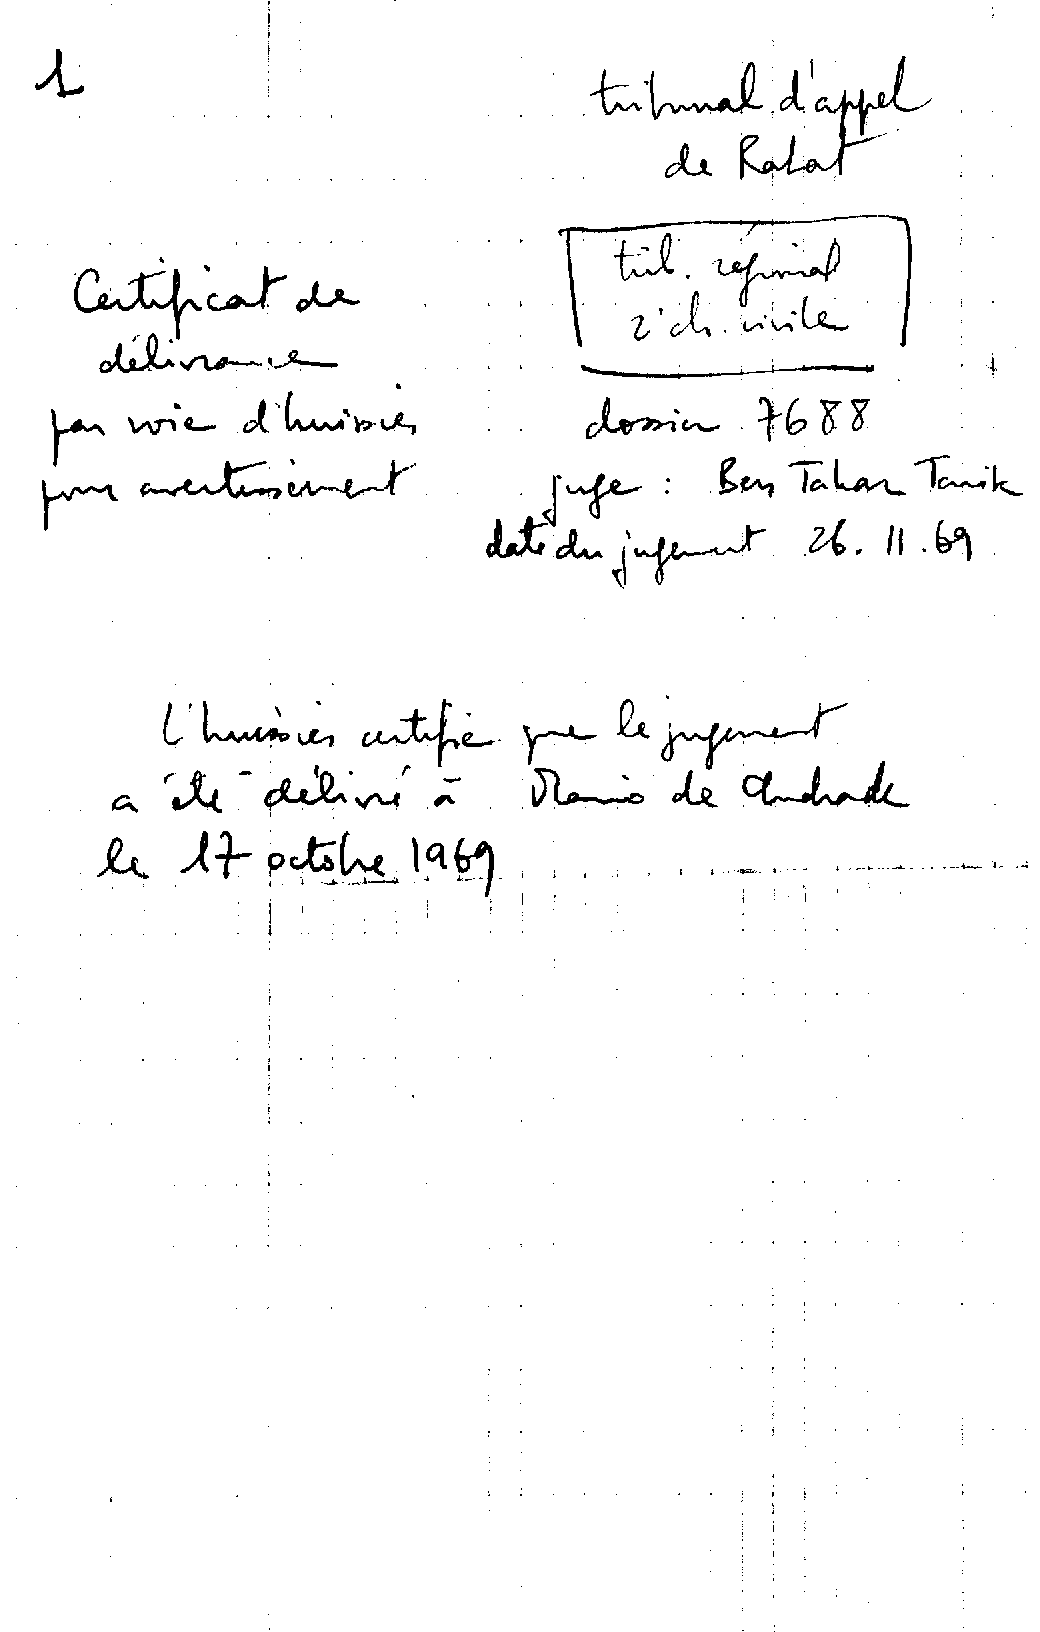 1
tribunal d'appel
de Rabat
trib. régional
2° ch. civile
Certificat de
délivrance
par voie d'huissier
pour avertissement
dossier 7688
juge : Ben Tahar Tarik
date du jugement 26.11.69
L'huissier certifie que le jugement
a été délivré à Mario de Andrade
le 17 octobre 1969